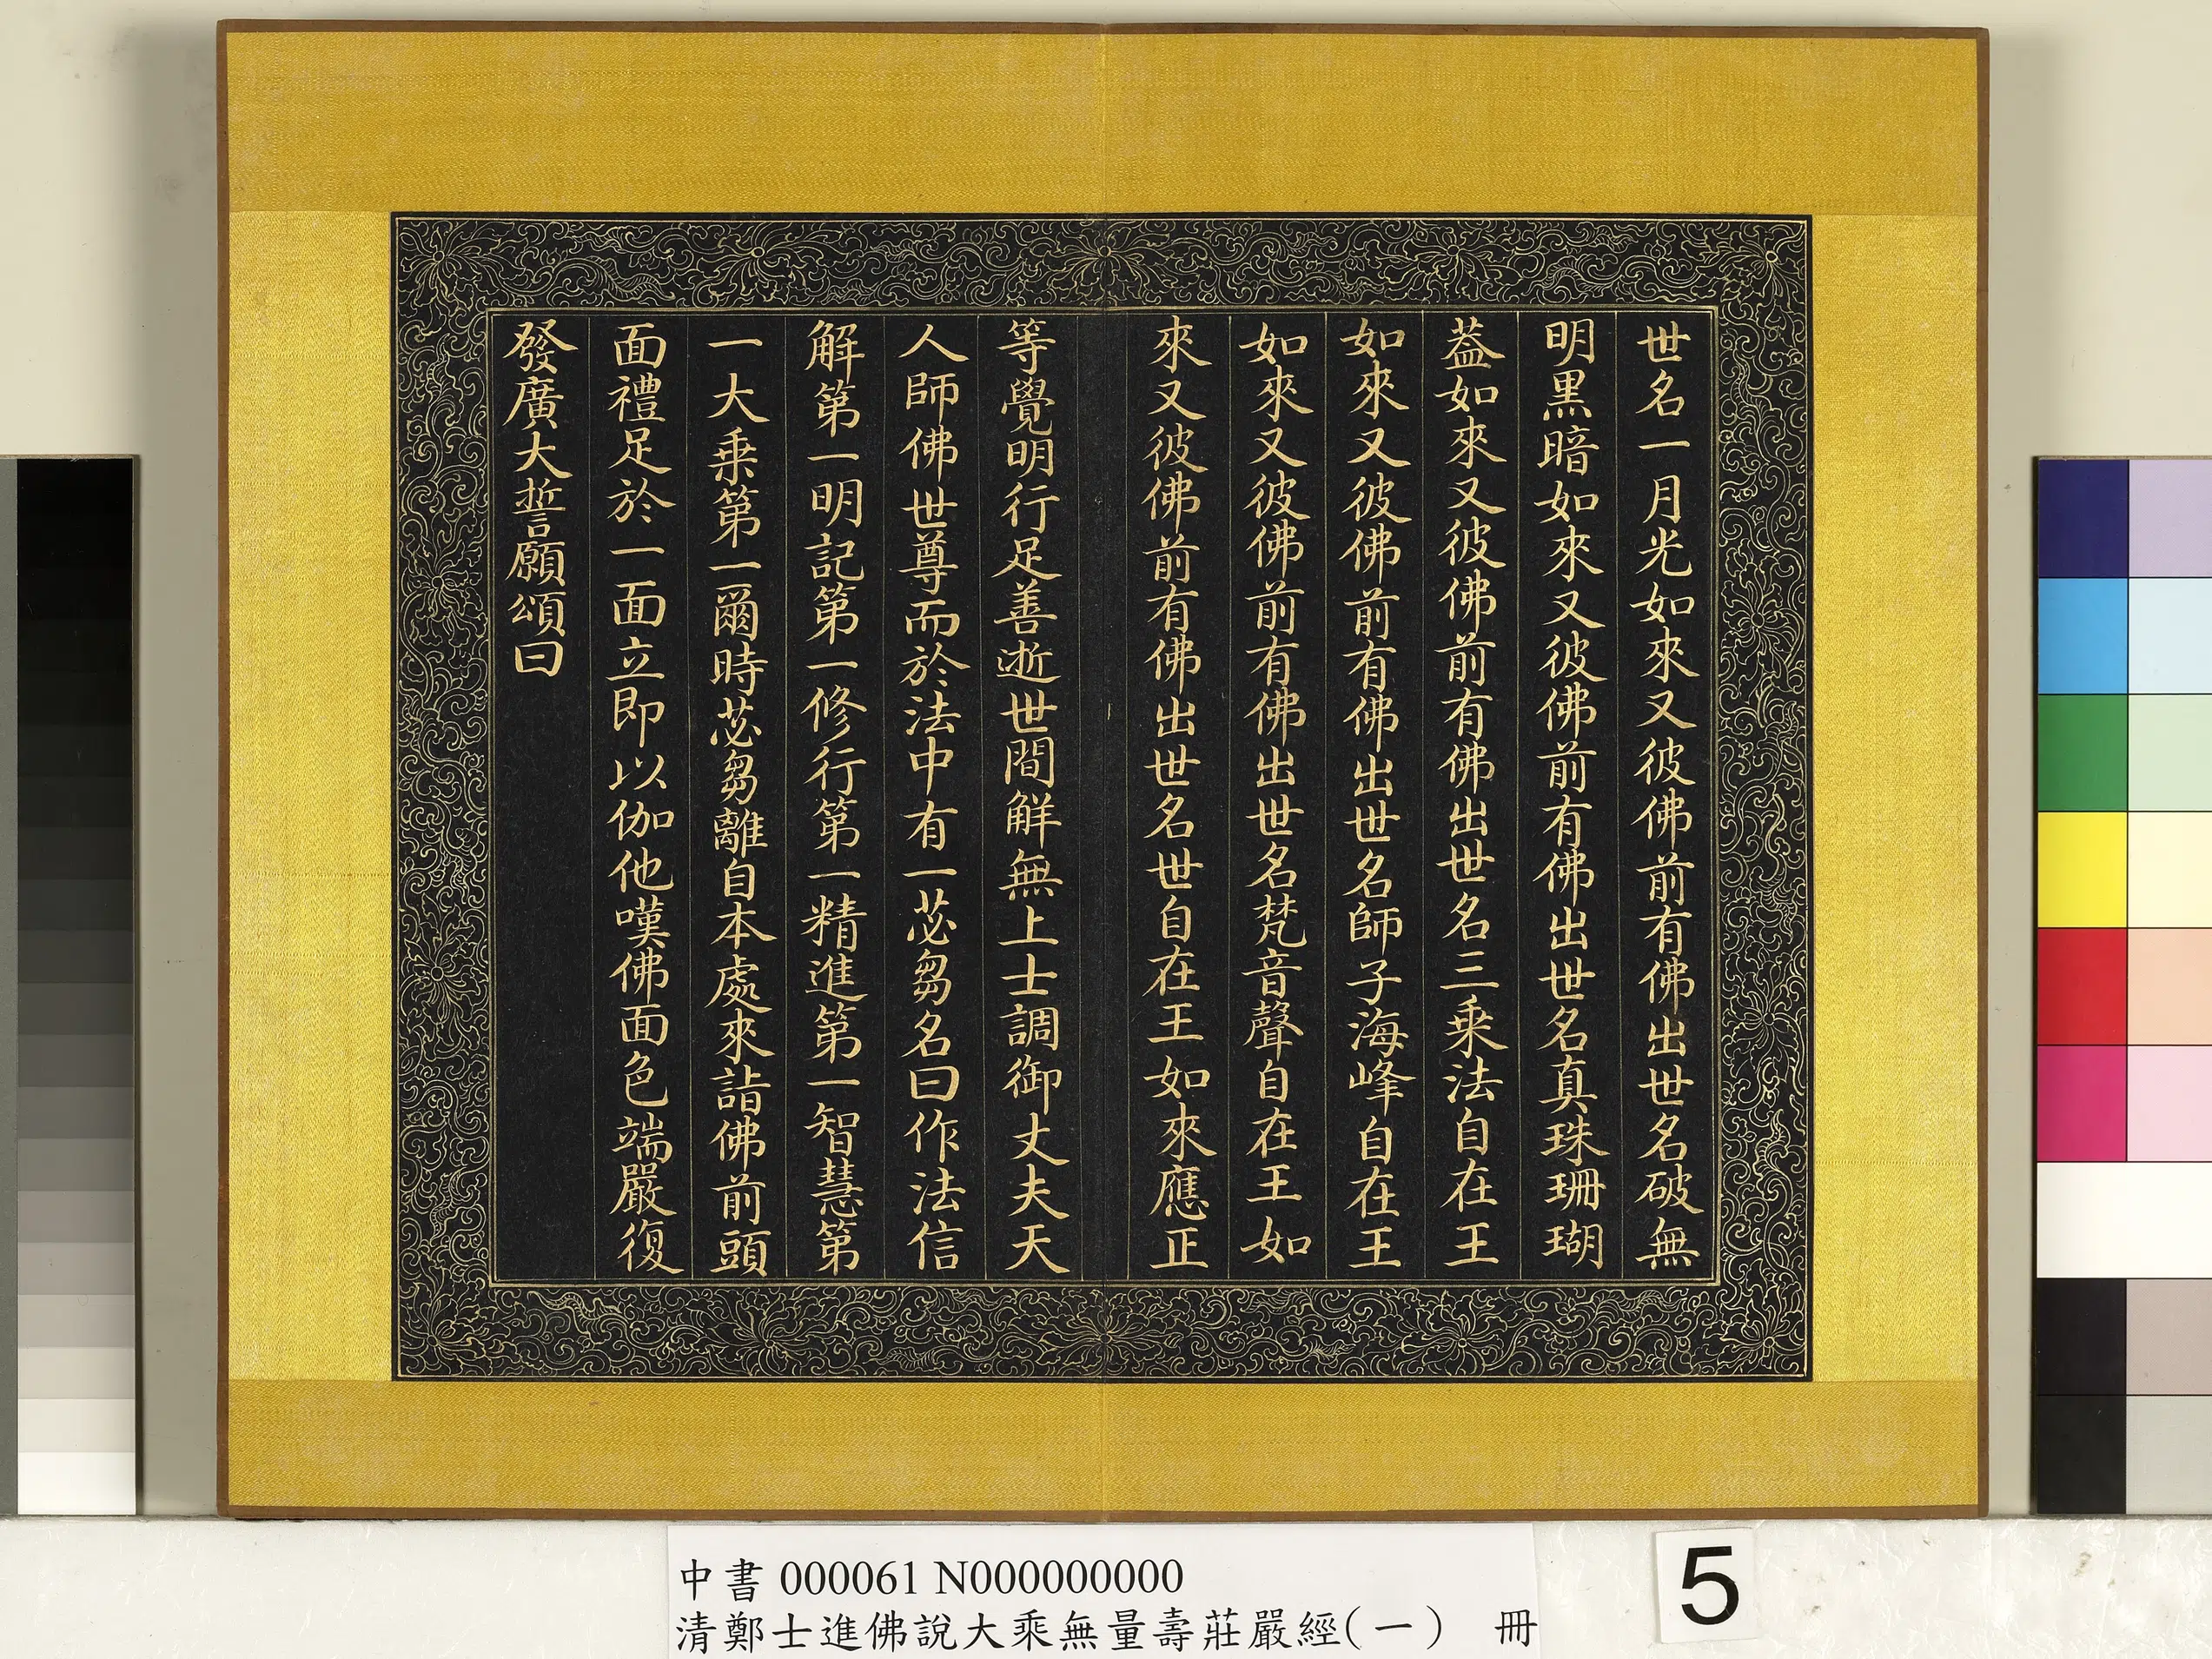 世名一月光如來又彼佛前有佛出世名破無
明黒暗如來又彼佛前有佛出世名真珠珊瑚
葢如來又彼佛前有佛出世名三乘法自在王
如來又彼佛前有佛出世名師子海峰自在王
如來又彼佛前有佛出世名梵音聲自在王如
來又彼佛前有佛出世名世自在王如來應正
等覺明行足善逝世間解無上士調御丈夫天
人師佛世尊而於法中有一苾芻名曰作法信
解第一明記第一修行第一精進第一智慧第
一大乘第一爾時苾芻離自本處來詣佛前頭
面禮足於一面立即以伽他嘆佛面色端嚴復
發廣大誓願頌曰
中書 000061 N000000000
清鄭士進佛說大乘無量壽莊嚴經(一) 冊
5